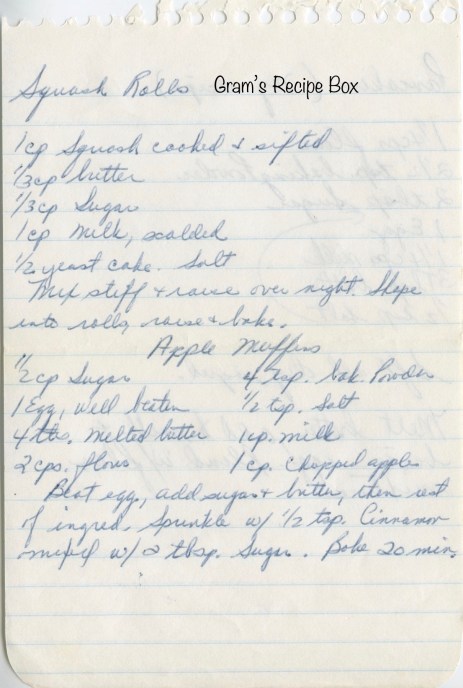 Squash Rolls
Gram's Recipe Box
1 cp Squash cooked & sifted
1/3 cp butter
1/3 cp Sugar
1 cp Milk, scalded
1/2 yeast cake. Salt
Mix stiff & raise over night. Shape
into rolls, raise & bake.
Apple Muffins
1/2 cp Sugar 4 tsp. bak. Powder
1 Egg, well beaten 1/2 tsp. Salt
4 tbs. melted butter 1 cp. milk
2 cps. flour 1 cp. chopped apples
Beat egg, add sugar & butter, then rest
of ingred. Sprinkle w/ 1/2 tsp. Cinnamon
mixed w/ 2 tbsp. Sugar. Bake 20 min.